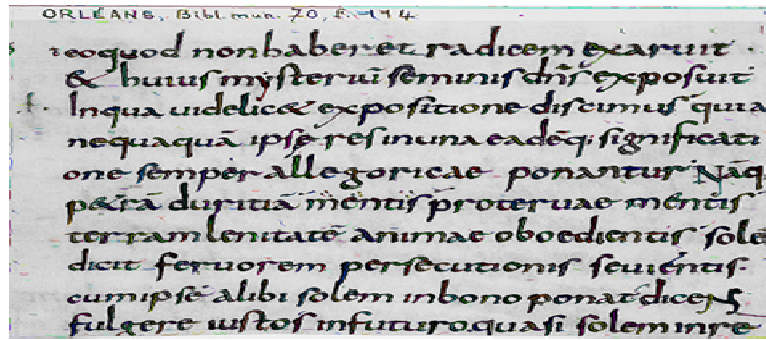 ORLÉANS, Bibl. mun. 70, f. 114
eoquod non haberet radicem exaruit .
& huius mysteriū seminis dn̄s exposuit
Inqua uidelic& expositione discimus quia
nequaquā ipse res inuna eadēq; significati
one semper allegoricae ponantur Nāq
p&rā duritiā mentis proteruae mentis
terram lenitatē animae oboedientis sole
dicit feruorem persecutionis seuientis.
cum ipse alibi solem inbono ponat dicens
fulgere iustos infuturo quasi solem inre